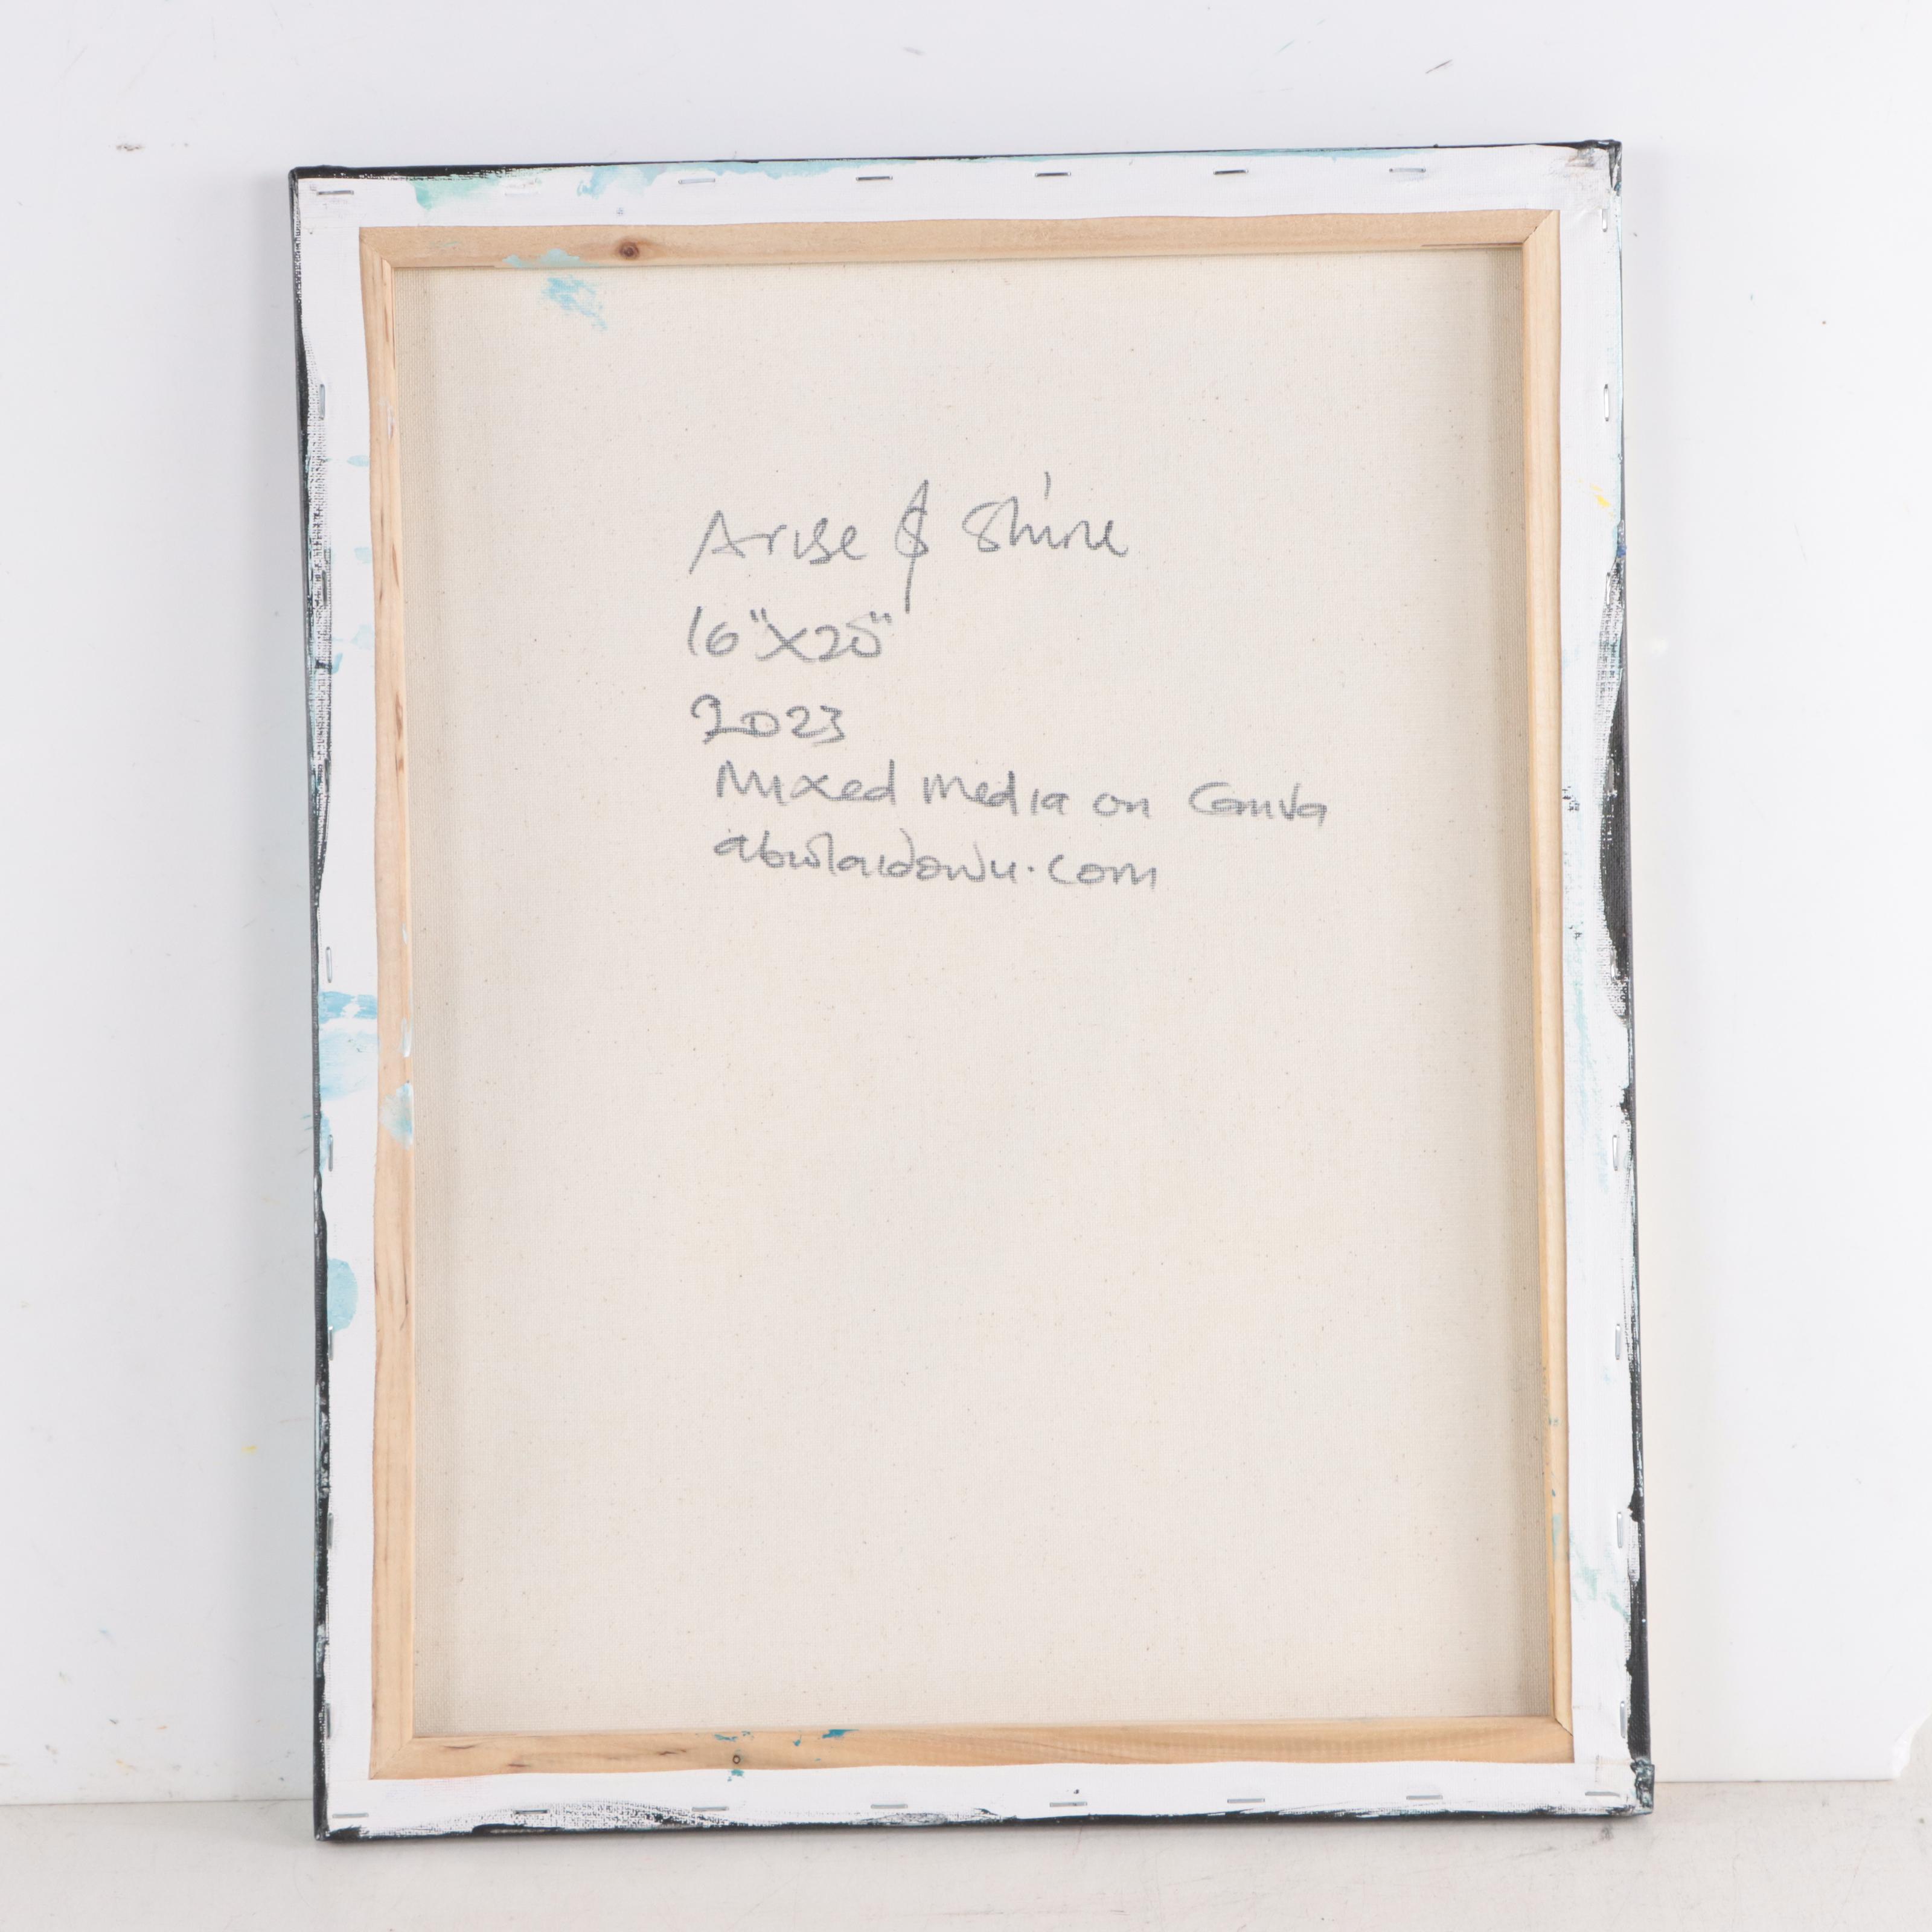 Arise & Shine
16"X20"
2023
Mixed media on Canva
abiolaidowu.com